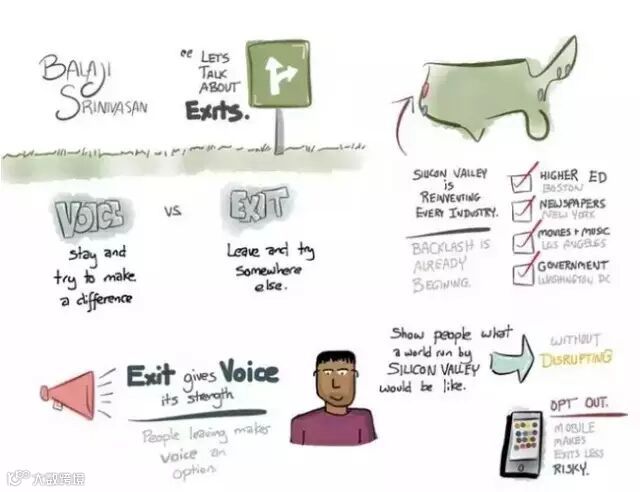 BALAJI
SRINIVASAN
"LET'S
TALK
ABOUT
Exits.
VOICE
VS.
EXIT
Stay and
try to make
a difference
Leave and try
Somewhere
else.
SILICON VALLEY
IS
REINVENTING
EVERY INDUSTRY.
BACKLASH IS
ALREADY
BEGINING.
HIGHER ED
BOSTON
NEWSPAPERS
NEW YORK
MOVIES + MUSIC
LOS ANGELES
GOVERNMENT
WASHINGTON DC
Exit gives Voice
its strength
People leaving makes
voice an
option.
Show people what
a world run by
SILICON VALLEY
would be like.
WITHOUT
DISRUPTING
OPT OUT.
MOBILE
MAKES
EXITS LESS
RISKY.
大数跨境